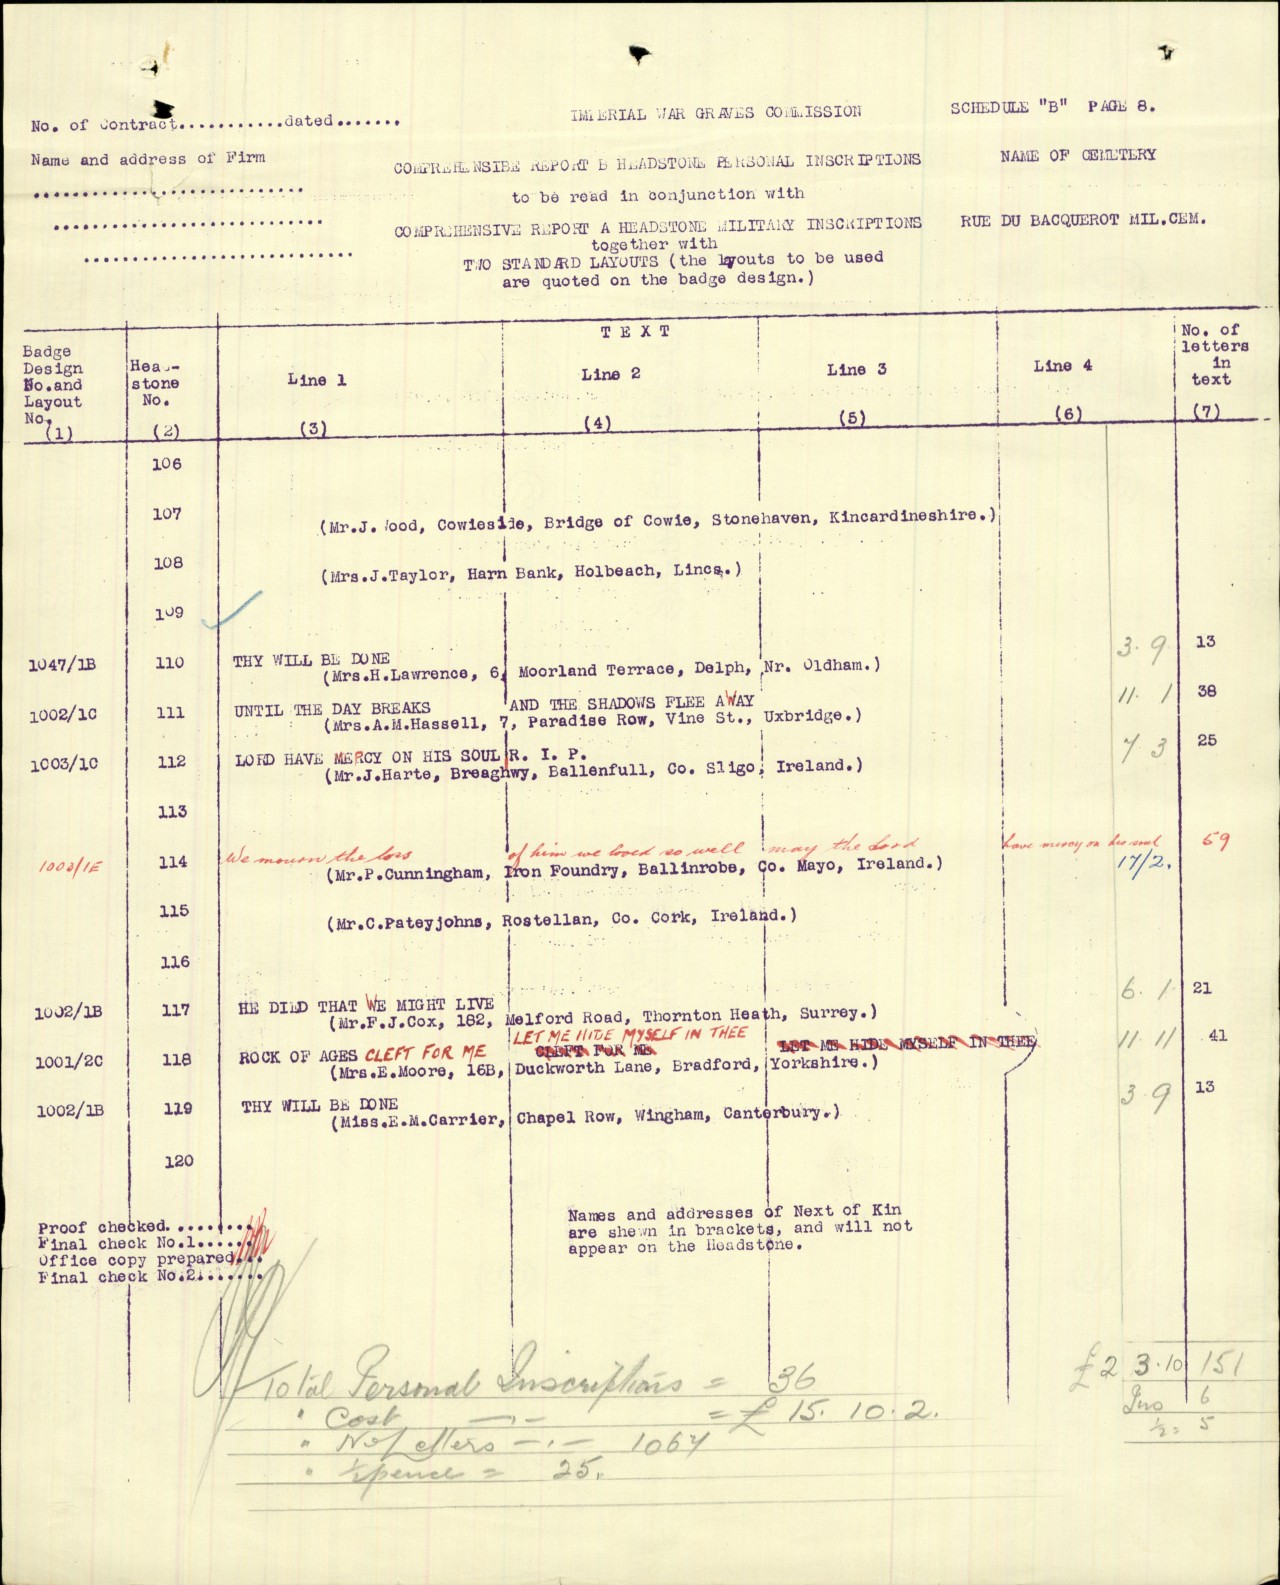 No. of Contract...........dated.......
IMPERIAL WAR GRAVES COMMISSION
SCHEDULE "B" PAGE 8.
Name and address of Firm
COMPREHENSIBE REPORT B HEADSTONE PERSONAL INSCRIPTIONS
NAME OF CEMETERY
to be read in conjunction with
COMPREHENSIVE REPORT A HEADSTONE MILITARY INSCRIPTIONS
RUE DU BACQUEROT MIL.CEM.
together with
TWO STANDARD LAYOUTS (the layouts to be used
are quoted on the badge design.)
TEXT
Badge Design No.and Layout No. (1)
Head-stone No. (2)
Line 1 (3)
Line 2 (4)
Line 3 (5)
Line 4 (6)
No. of letters in text (7)
106
107 (Mr.J.Wood, Cowieside, Bridge of Cowie, Stonehaven, Kincardineshire.)
108 (Mrs.J.Taylor, Harn Bank, Holbeach, Lincs.)
109
1047/1B 110 THY WILL BE DONE 3. 9 13
(Mrs.H.Lawrence, 6, Moorland Terrace, Delph, Nr. Oldham.)
1002/1C 111 UNTIL THE DAY BREAKS AND THE SHADOWS FLEE AWAY 11. 1 38
(Mrs.A.M.Hassell, 7, Paradise Row, Vine St., Uxbridge.)
1003/1C 112 LORD HAVE MERCY ON HIS SOUL R. I. P. 7 3 25
(Mr.J.Harte, Breaghwy, Ballenfull, Co. Sligo, Ireland.)
113
1003/1E 114 We mourn the loss of him we loved so well may the Lord have mercy on his soul 17/2. 59
(Mr.P.Cunningham, Iron Foundry, Ballinrobe, Co. Mayo, Ireland.)
115 (Mr.C.Pateyjohns, Rostellan, Co. Cork, Ireland.)
116
1002/1B 117 HE DIED THAT WE MIGHT LIVE 6. 1 21
(Mr.F.J.Cox, 182, Melford Road, Thornton Heath, Surrey.)
LET ME HIDE MYSELF IN THEE
1001/2C 118 ROCK OF AGES CLEFT FOR ME CLEFT FOR ME LET ME HIDE MYSELF IN THEE 11. 11 41
(Mrs.E.Moore, 16B, Duckworth Lane, Bradford, Yorkshire.)
1002/1B 119 THY WILL BE DONE 3 9 13
(Miss.E.M.Carrier, Chapel Row, Wingham, Canterbury.)
120
Proof checked.........
Final check No.1......
Office copy prepared...
Final check No.2.......
Names and addresses of Next of Kin
are shewn in brackets, and will not
appear on the Headstone.
£2 3.10 151
Ins 6
½= 5
Total Personal Inscriptions = 36
" Cost = £ 15. 10. 2.
" No of letters 1067
" ½pence = 25.